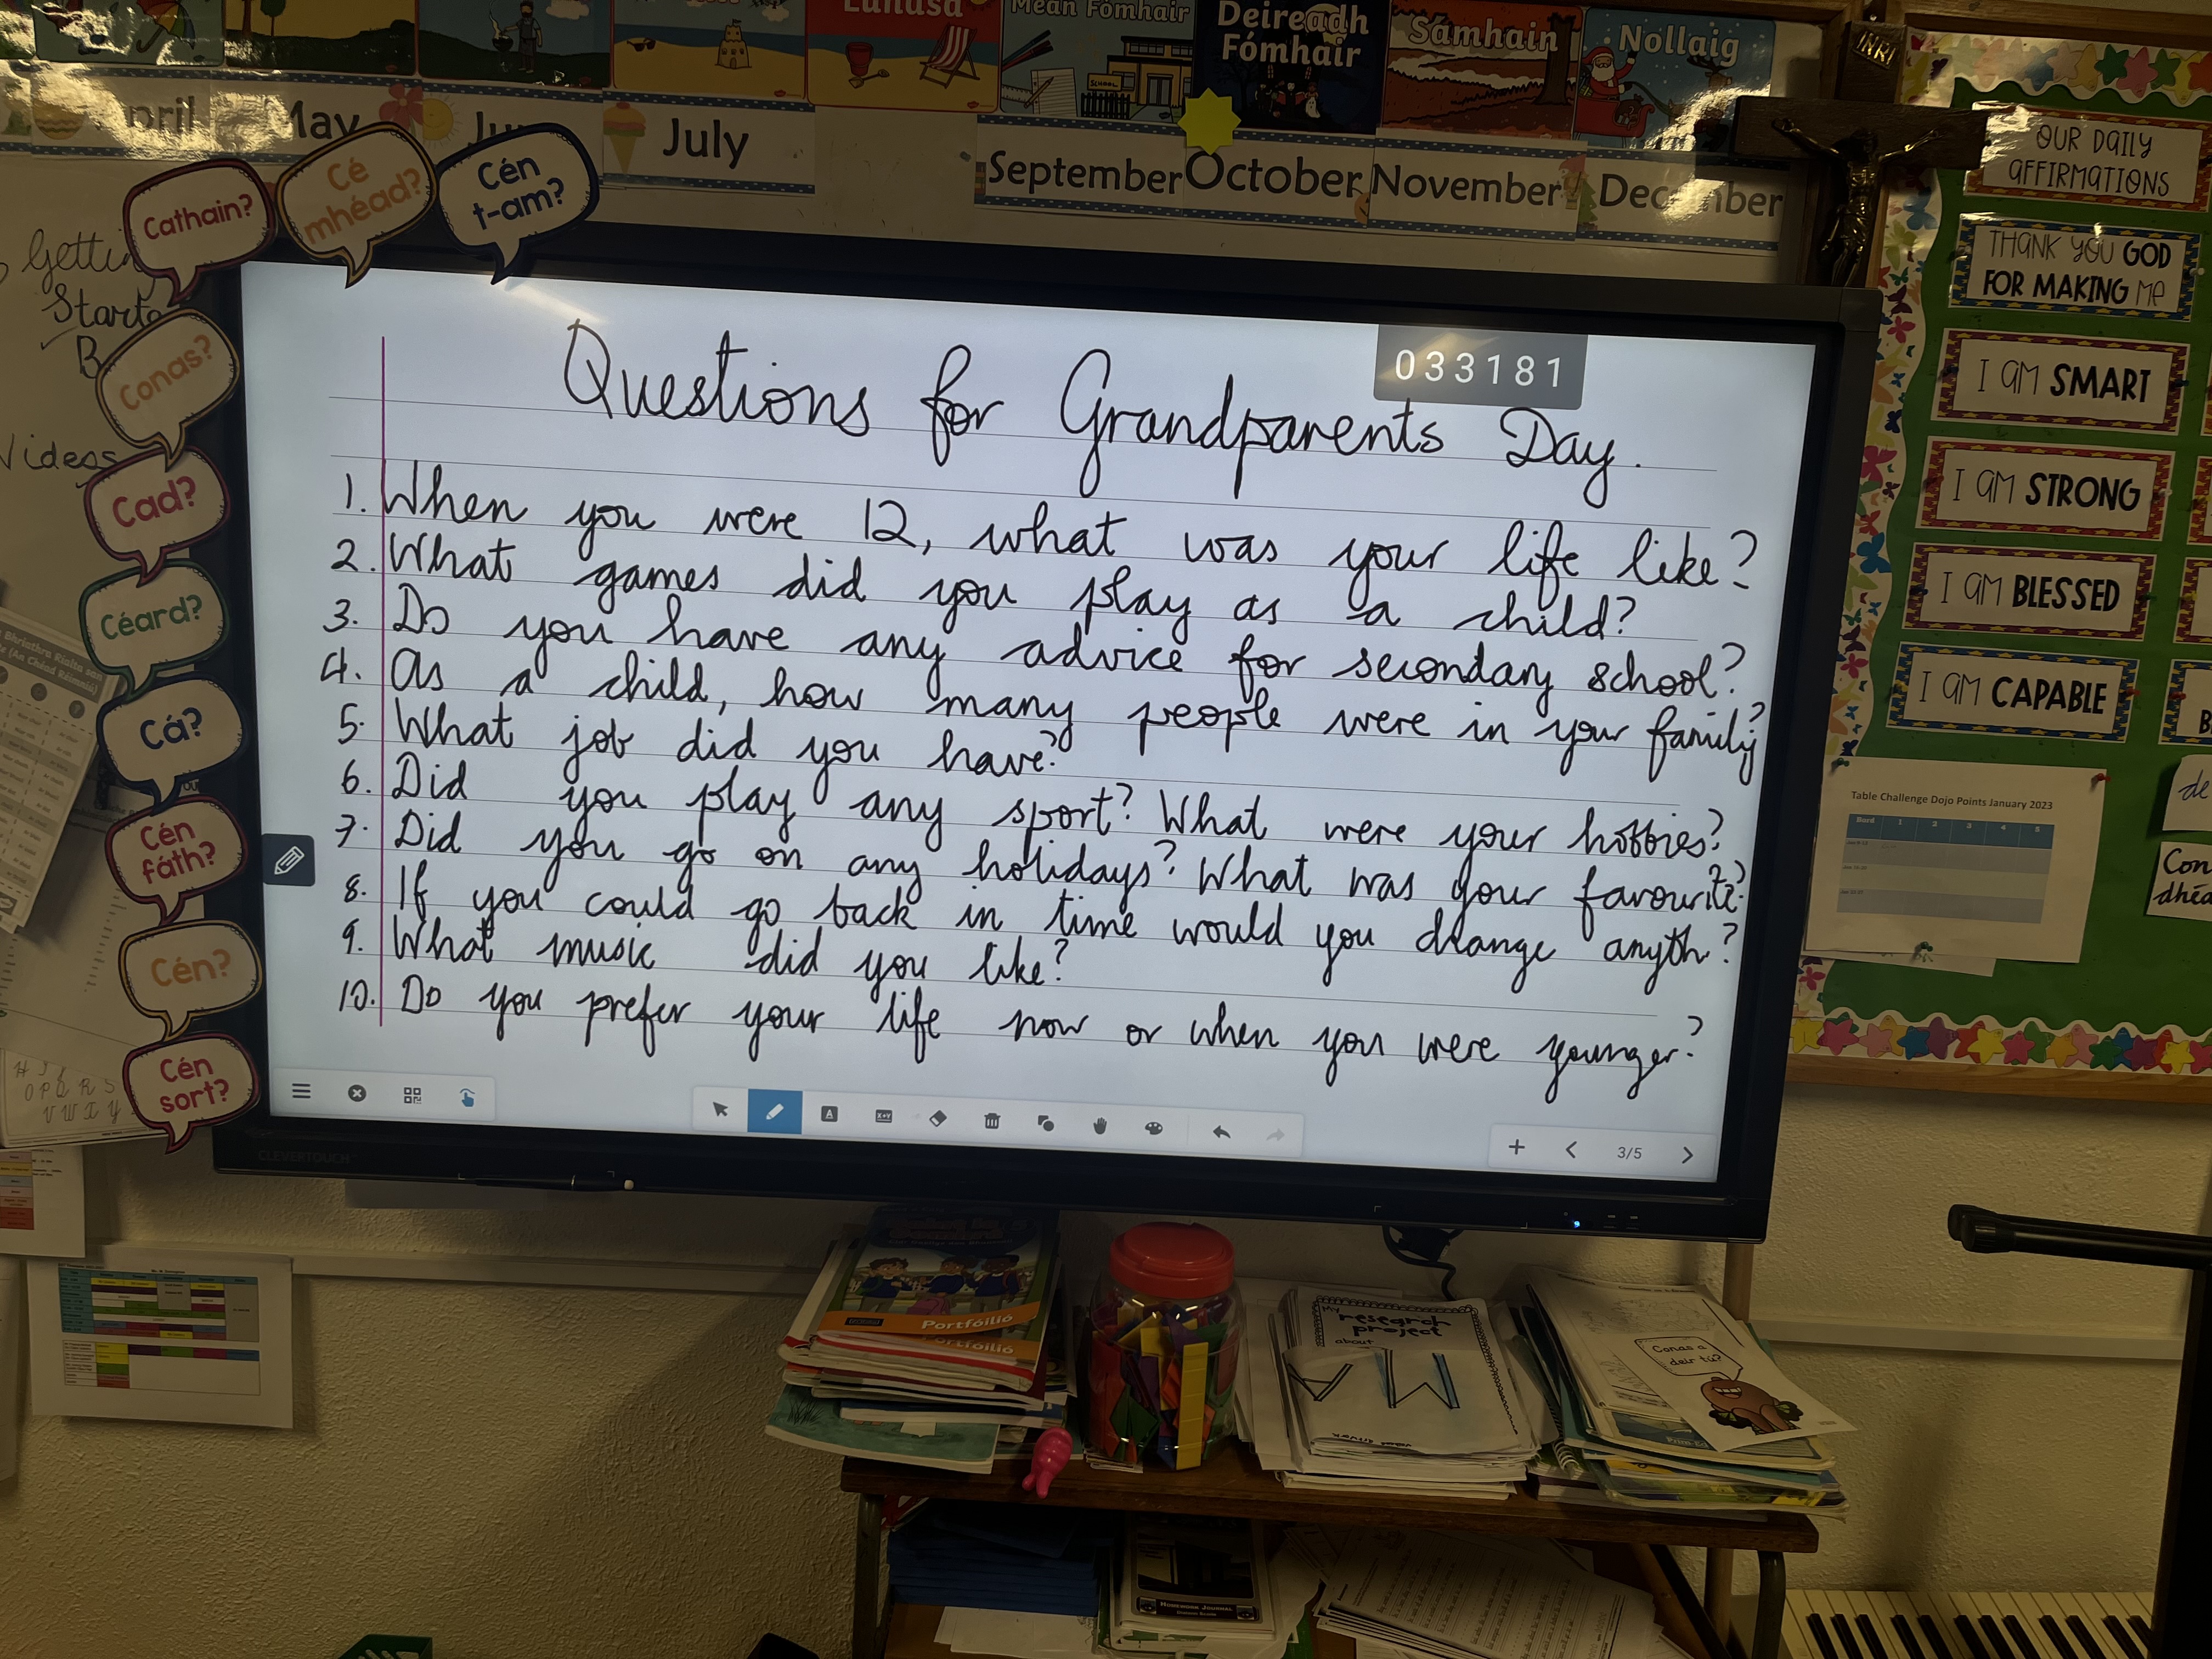 Lúnasa
Meán Fómhair
Deireadh
Fómhair
Samhain
Nollaig
April
May
July
September
October
November
December
INRI
Cathain?
Cé
mhéad?
Cén
t-am?
Conas?
Cad?
Céard?
Cá?
Cén
fáth?
Cén?
Cén
sort?
033181
Questions for Grandparents Day.
1. When you were 12, what was your life like?
2. What games did you play as a child?
3. Do you have any advice for secondary school?
4. As a child, how many people were in your family?
5. What job did you have?
6. Did you play any sport? What were your hobbies?
7. Did you go on any holidays? What was your favourite?
8. If you could go back in time would you change anyth?
9. What music did you like?
10. Do you prefer your life now or when you were younger?
3/5
CLEVERTOUCH
OUR DAILY
AFFIRMATIONS
THANK YOU GOD
FOR MAKING ME
I AM SMART
I AM STRONG
I AM BLESSED
I AM CAPABLE
Table Challenge Dojo Points January 2023
1 2 3 4 5
de
Con
dhéa
Videos
O P Q R S
V W X Y
Portfóilió
Portfóilió
My
research
project
about
Conas a
deir tú?
HOMEWORK JOURNAL